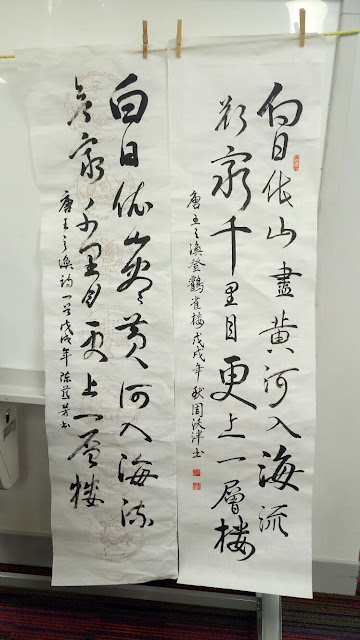 白日依山盡黃河入海流
欲窮千里目更上一層樓
唐王之渙登鸛雀樓戊戌年秋周津书
白日依山盡黃河入海流
欲窮千里目更上一層樓
唐王之渙詩一首戊戌年陳芳书